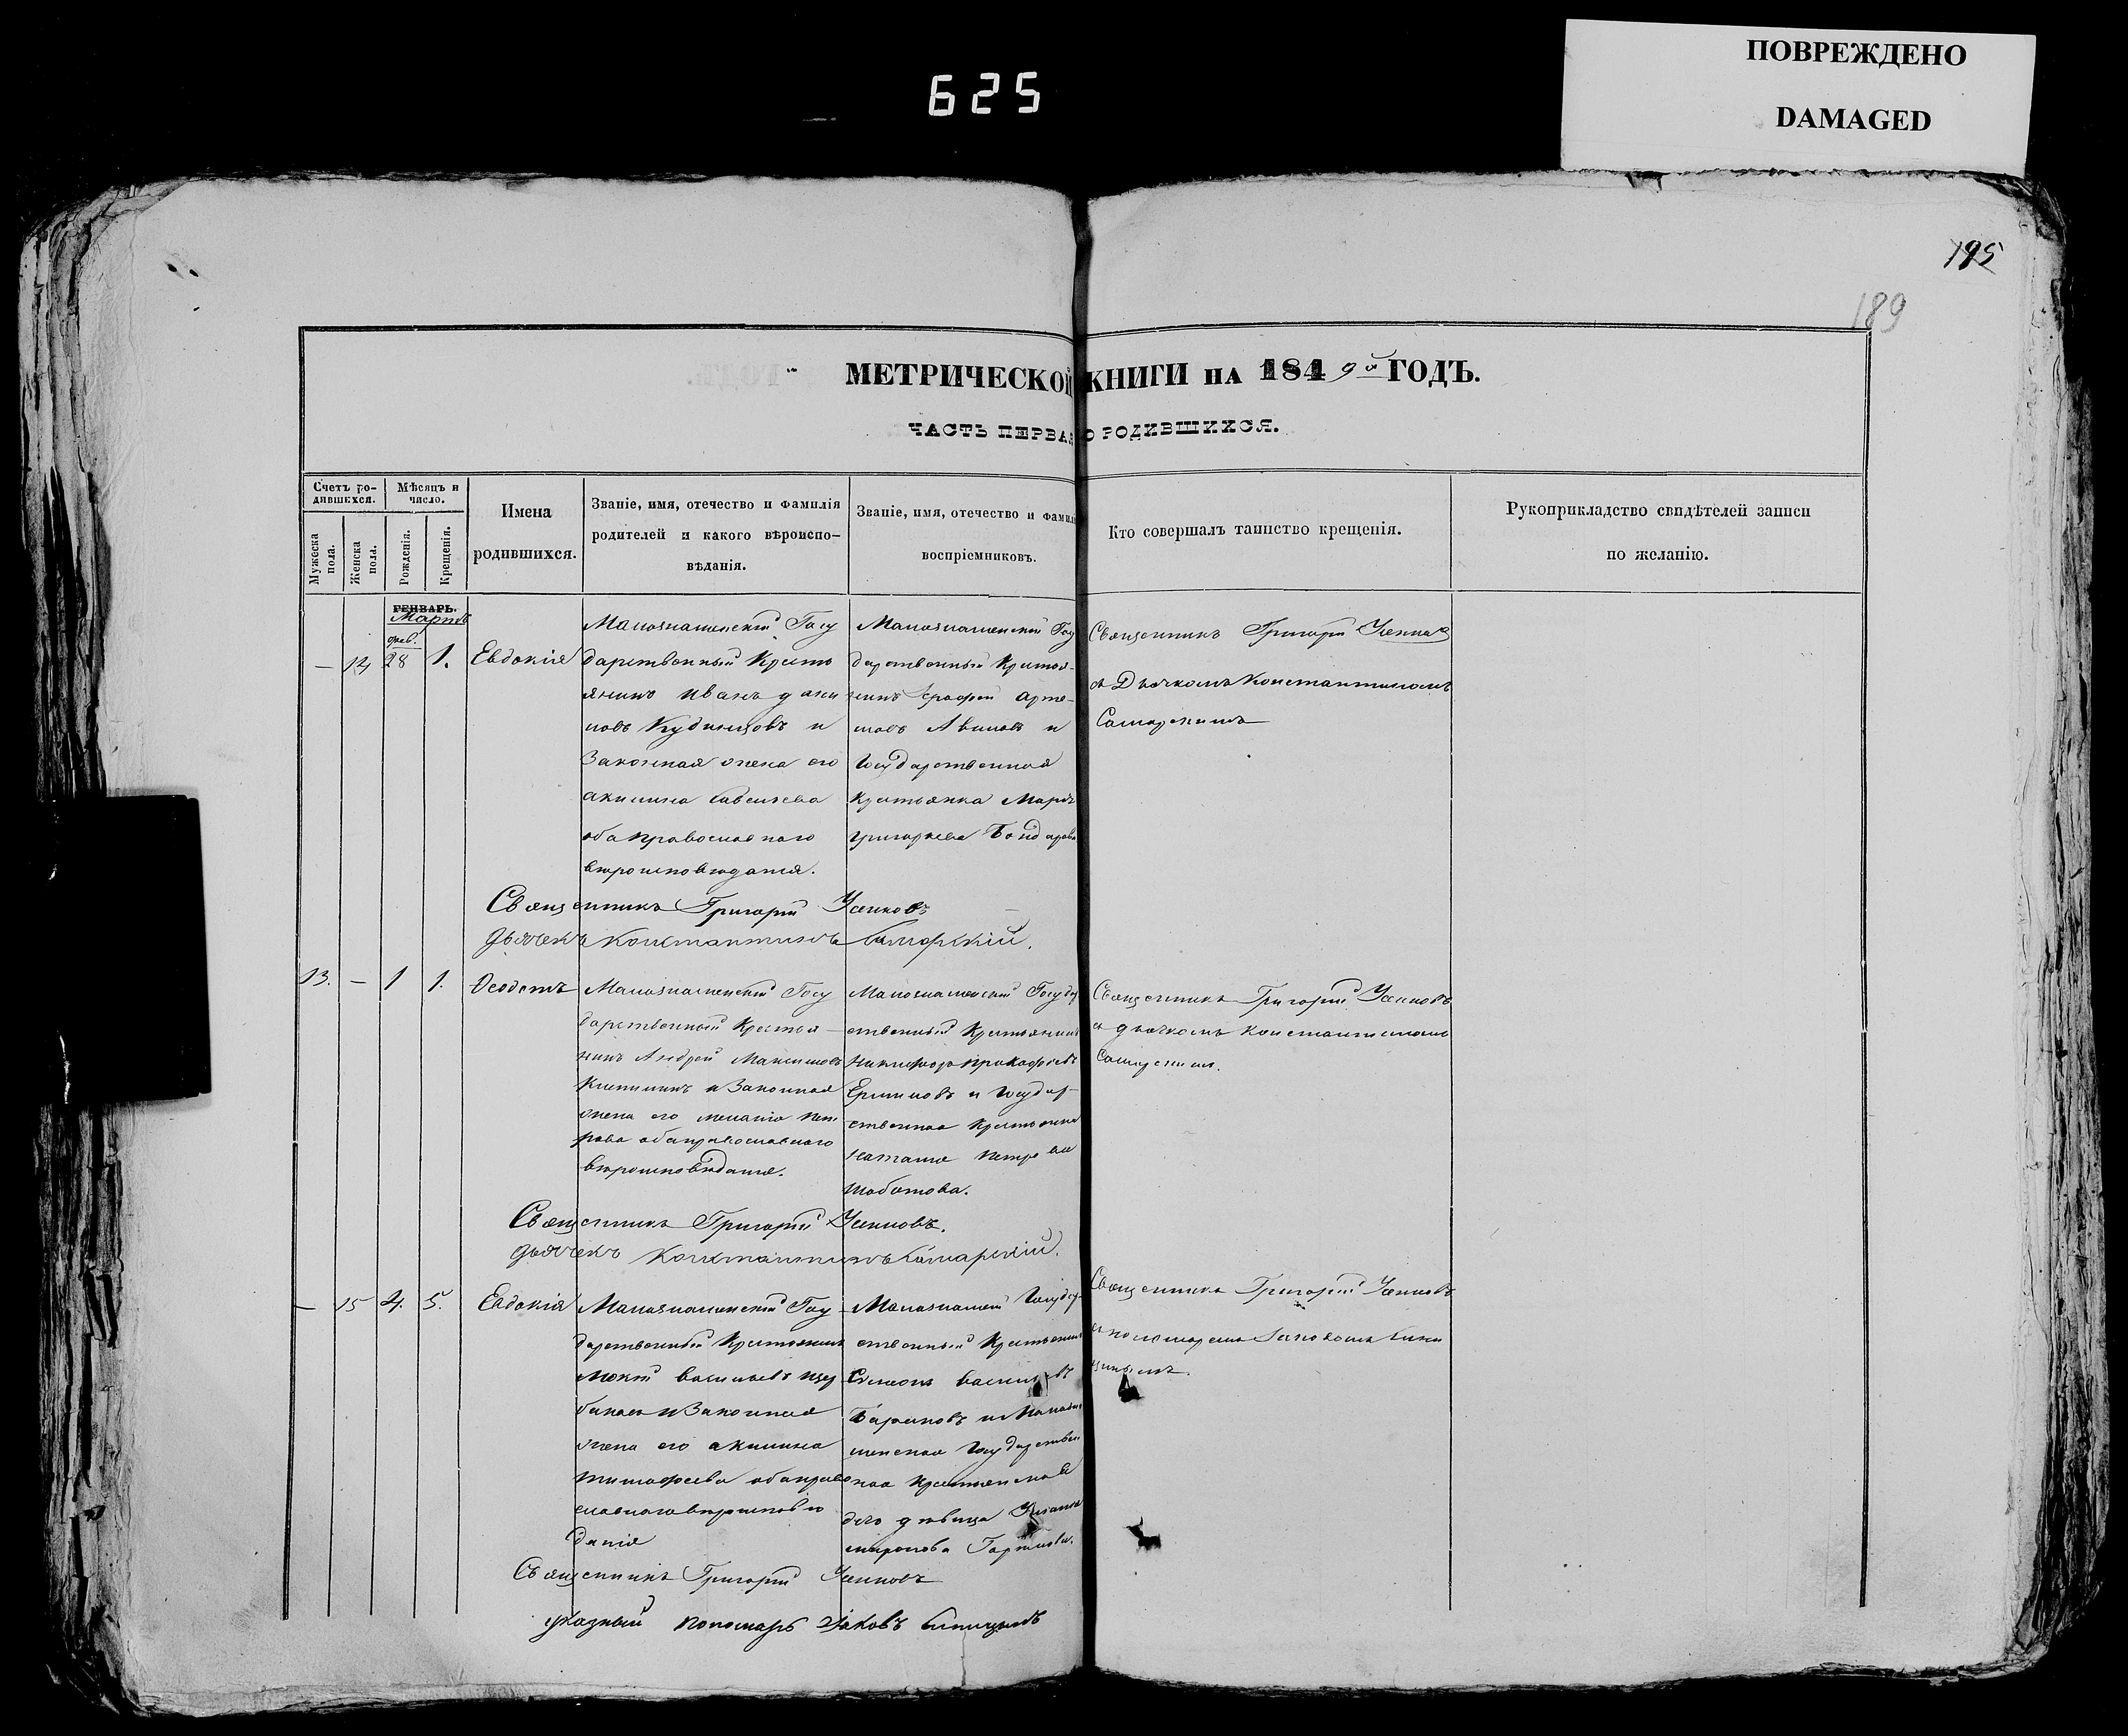 ПОВРЕЖДЕНО
DAMAGED
625
195
189
МЕТРИЧЕСКОЙ КНИГИ НА 1849й ГОДЪ.
ЧАСТЬ ПЕРВАЯ О РОДИВШИХСЯ.
Счетъ родившихся.
Мужеска пола.
Женска пола.
Мѣсяцъ и число.
Рожденія.
Крещенія.
Имена родившихся.
Званіе, имя, отечество и фамилія
родителей и какого вѣроиспо-
вѣданія.
Званіе, имя, отечество и фамил
воспріемниковъ.
Кто совершалъ таинство крещенія.
Рукоприкладство свидѣтелей записи
по желанію.
ГЕНВАРЬ.
Мартъ
фев.
— 14 28 1. Евдокія
Малознаменскій Госу
дарственный Крестья
янинъ Иванъ
новъ Кудинцовъ и
Законная жена его
акилина Савельева
оба православнаго
вѣроисповѣданія.
Малознаменскій Госу
дарственный Крестья-
нинъ арте-
мовъ и
Государственная
крестьянка
григорьева Бондарева
Священникъ Григорій
съ Дьячкомъ Константиномъ
Самарскимъ
Священникъ Григорій Усенковъ
Дьячекъ Константинъ Самарскій.
13. — 1 1. Ѳеодотъ
Малознаменскій Госу
дарственный Крестья-
нинъ Андрей Максимовъ
и Законная
жена его меланія пет
рова оба православнаго
вѣроисповѣданія.
Малознаменскій Государ
ственный Крестьянинъ
Никифоръ прокофьевъ
и Государ-
ственная Крестьянка
наталія петрова
Священникъ Григорій Усенковъ
съ дьячкомъ Константиномъ
Самарскимъ.
Священникъ Григорій Усенковъ.
Дьячекъ Константинъ Самарскій.
— 15 4. 5. Евдокія
Малознаменскій Госу
дарственный Крестьянинъ
Мокій васильевъ
и Законная
жена его акилина
тимофеева оба право
славнаго вѣроисповѣ
данія
Государ
ственный Крестьянинъ
Симеонъ васильевъ
Барановъ и
менская Государствен
ная
дѣвица
миронова
Священникъ Григорій Усенковъ
съ пономаремъ Іаковомъ Сини
цынымъ.
Священникъ Григорій Усенковъ
указный пономарь Іаковъ Синицынъ